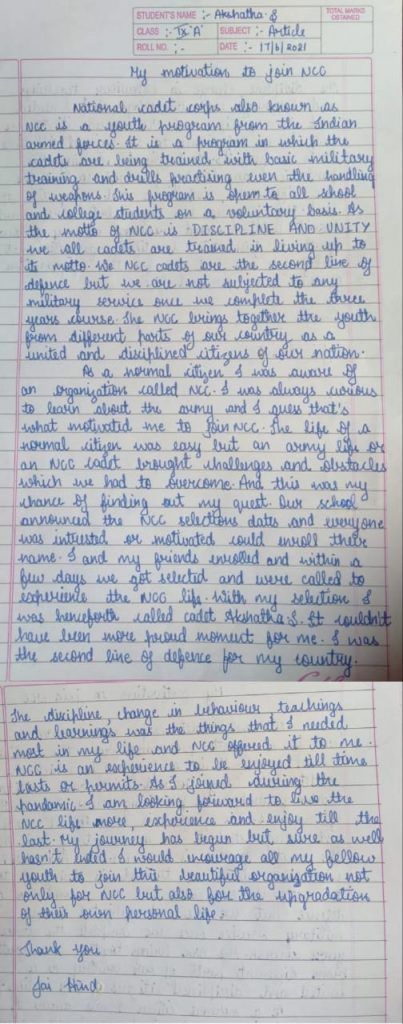 STUDENT'S NAME :- Akshatha.S
TOTAL MARKS OBTAINED
CLASS :- IX 'A' SUBJECT :- Article
ROLL NO. :- DATE :- 17/6/2021
My motivation to join NCC
National cadet corps also known as
NCC is a youth program from the Indian
armed forces. It is a program in which the
cadets are being trained with basic military
training and drills practising even the handling
of weapons. This program is open to all school
and college students on a voluntary basis. As
the motto of NCC is DISCIPLINE AND UNITY
we all cadets are trained in living up to
its motto. We NCC cadets are the second line of
defence but we are not subjected to any
military service once we complete the three
years course. The NCC brings together the youth
from different parts of our country as a
united and disiplined citizens of our nation.
As a normal citizen I was aware of
an organization called NCC. I was always curious
to learn about the army and I guess that's
what motivated me to join NCC. The life of a
normal citizen was easy but an army life or
an NCC cadet brought challenges and obstacles
which we had to overcome. And this was my
chance of finding out my quest. Our school
announced the NCC selections dates and everyone
was intrested or motivated could enroll their
name. I and my friends enrolled and within a
few days we got selected and were called to
experience the NCC life. With my selection I
was henceforth called cadet Akshatha.S. It couldn't
have been more proud moment for me. I was
the second line of defence for my country.
The discipline, change in behaviour teachings
and learnings was the things that I needed
most in my life and NCC offered it to me.
NCC is an experience to be enjoyed till time
lasts or permits. As I joined during the
pandamic. I am looking forward to live the
NCC life more, experience and enjoy till the
last. My journey has begun but sure as well
hasn't ended. I would encourage all my fellow
youth to join this beautiful organization not
only for NCC but also for the upgradation
of their own personal life.
Thank you
Jai Hind